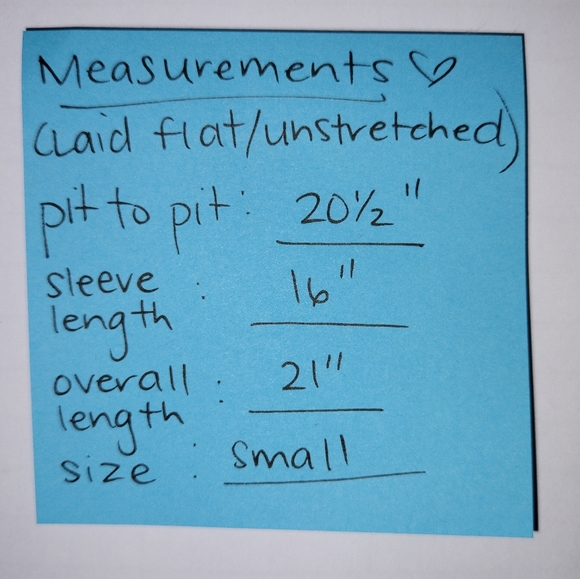 Measurements ♡
(Laid flat/unstretched)
pit to pit: 20½"
sleeve
length : 16"
overall
length : 21"
size : small